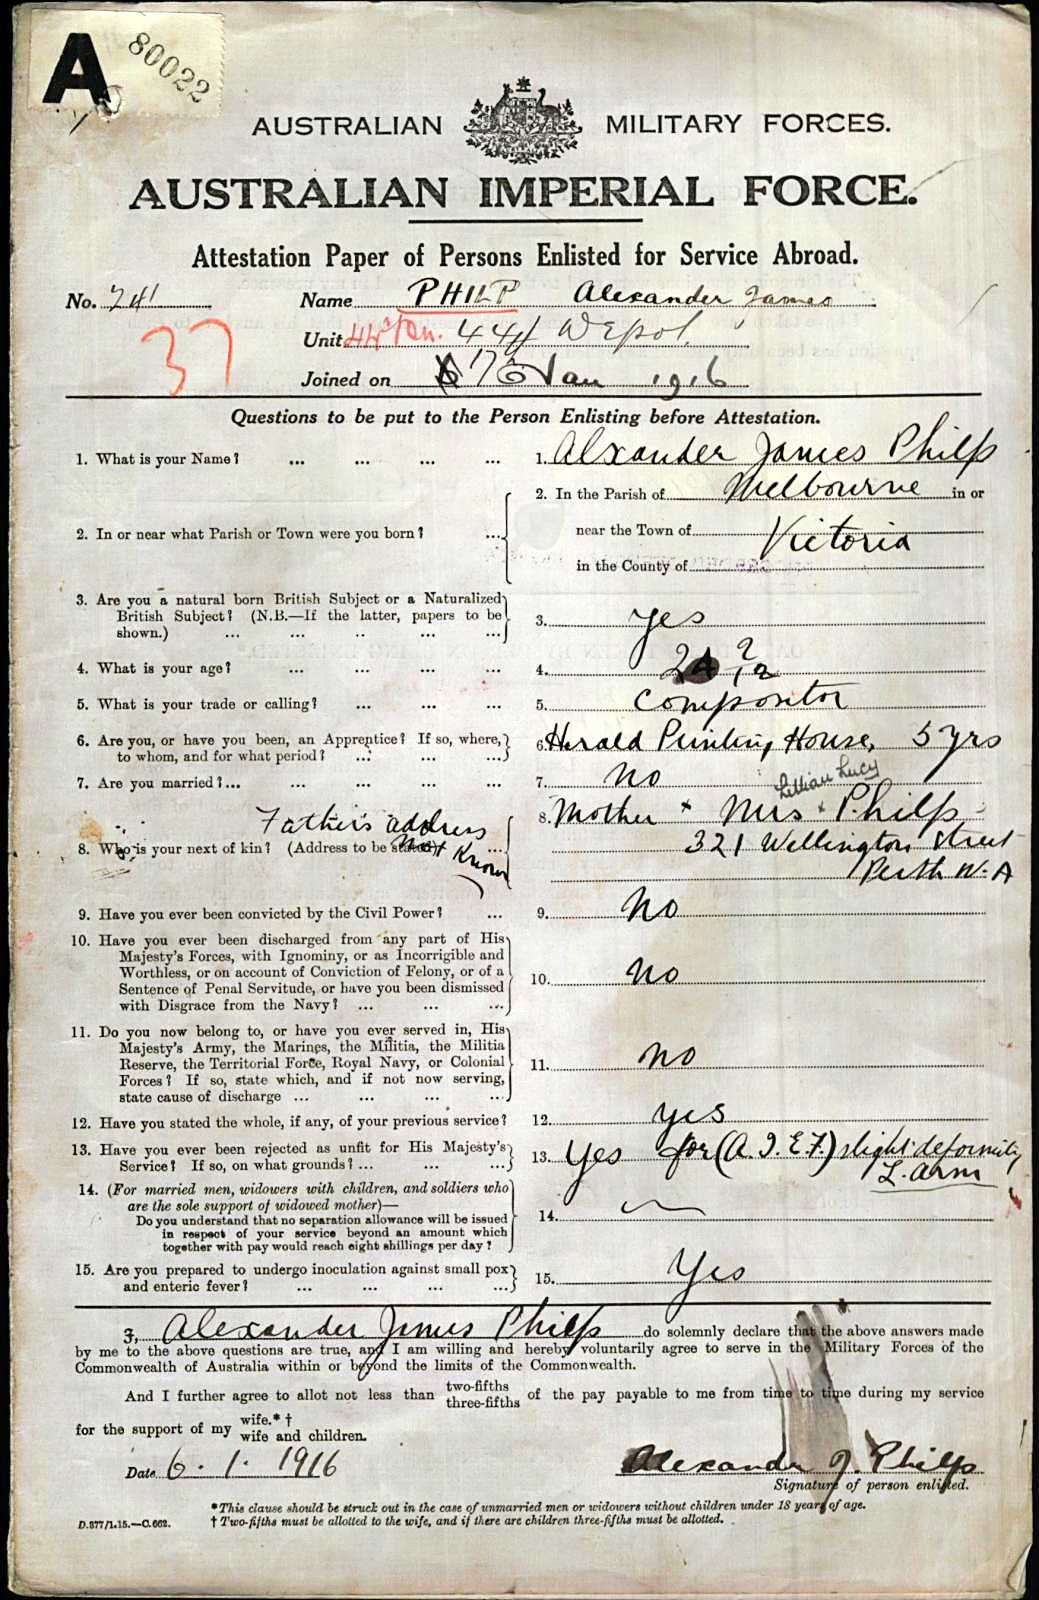 A 80022
AUSTRALIAN MILITARY FORCES.
AUSTRALIAN IMPERIAL FORCE.
Attestation Paper of Persons Enlisted for Service Abroad.
No. 741 Name PHILP Alexander James
37
Unit 44th Bn. 44th Depot.
Joined on 17 Jan 1916
Questions to be put to the Person Enlisting before Attestation.
1. What is your Name? ... ... ... ... 1. Alxander James Philp
2. In or near what Parish or Town were you born? ... 2. In the Parish of Melbourne in or
near the Town of Victoria
in the County of
3. Are you a natural born British Subject or a Naturalized
British Subject? (N.B.—If the latter, papers to be
shown.) ... ... .. ... ... 3. yes
4. What is your age? ... ... ... ... 4. 24 2/12
5. What is your trade or calling? ... ... ... 5. Compositor
6. Are you, or have you been, an Apprentice? If so, where,
to whom, and for what period? ... ... ... 6. Herald Printing House, 5 yrs
7. Are you married?... ... ... ... ... 7. No
Lillian Lucy
Father's address
not Known
8. Who is your next of kin? (Address to be stated) ... 8. Mother × Mrs × Philp
321 Wellington Street
Perth W.A
9. Have you ever been convicted by the Civil Power? ... 9. No
10. Have you ever been discharged from any part of His
Majesty's Forces, with Ignominy, or as Incorrigible and
Worthless, or on account of Conviction of Felony, or of a
Sentence of Penal Servitude, or have you been dismissed
with Disgrace from the Navy? ... ... ... 10. No
11. Do you now belong to, or have you ever served in, His
Majesty's Army, the Marines, the Militia, the Militia
Reserve, the Territorial Force, Royal Navy, or Colonial
Forces? If so, state which, and if not now serving,
state cause of discharge ... ... ... ... 11. No
12. Have you stated the whole, if any, of your previous service? 12. yes
13. Have you ever been rejected as unfit for His Majesty's
Service? If so, on what grounds? ... ... ... 13. Yes for (A.I.E.F.) slight deformity
L. arm
14. (For married men, widowers with children, and soldiers who
are the sole support of widowed mother)—
Do you understand that no separation allowance will be issued
in respect of your service beyond an amount which
together with pay would reach eight shillings per day? 14.
15. Are you prepared to undergo inoculation against small pox
and enteric fever? ... ... ... ... 15. Yes
I, Alexander James Philp do solemnly declare that the above answers made
by me to the above questions are true, and I am willing and hereby voluntarily agree to serve in the Military Forces of the
Commonwealth of Australia within or beyond the limits of the Commonwealth.
And I further agree to allot not less than two-fifths three-fifths of the pay payable to me from time to time during my service
for the support of my wife.*† wife and children.
Date 6. 1. 1916 Alexander J. Philp
Signature of person enlisted.
*This clause should be struck out in the case of unmarried men or widowers without children under 18 years of age.
D.877/1.15.—C.662. † Two-fifths must be allotted to the wife, and if there are children three-fifths must be allotted.